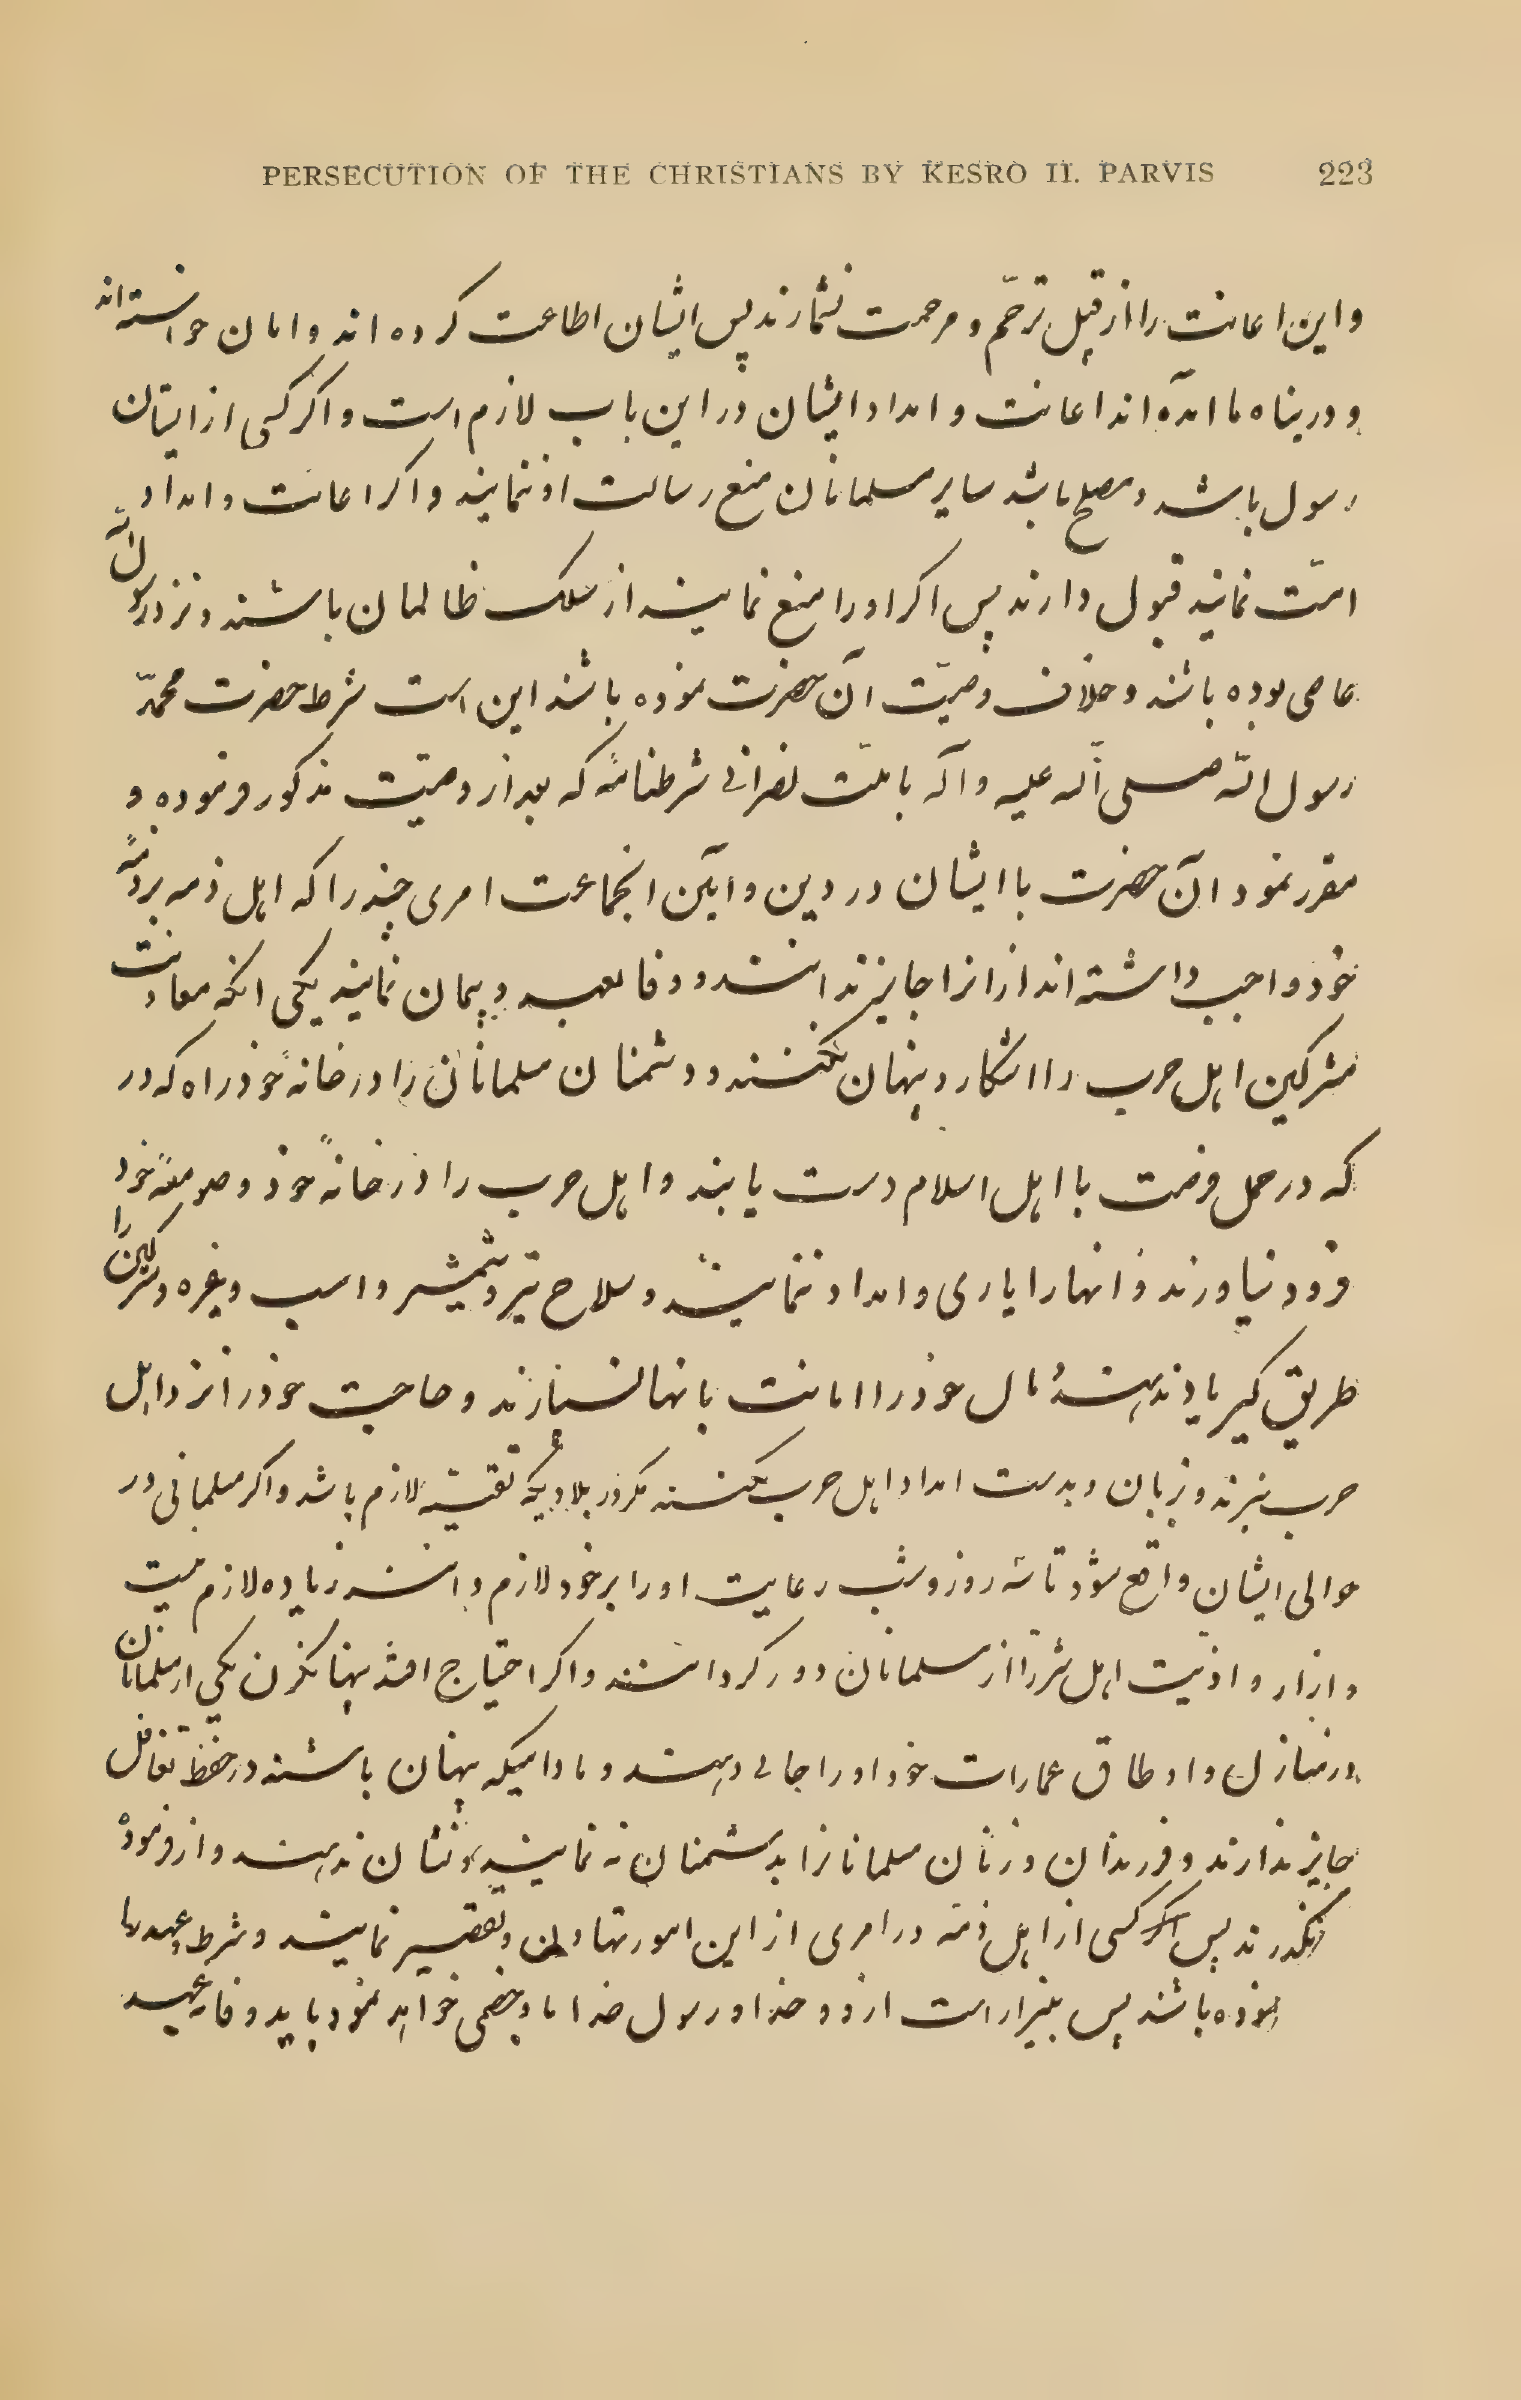 PERSECUTION OF THE CHRISTIANS BY KESRO II. PARVIS 223
و این اعانت را از قبیل ترحّم و مرحمت نشمارند پس ایشان اطاعت کرده اند و امان خواسته اند
و در پناه ما آمده اند اعانت و امداد ایشان در این باب لازم است و اکر کسی از ایشان
رسول باشد و مصلح باشد سایر مسلمانان منع رسالت او ننمایند و اکر اعانت و امداد
امّت نمایند قبول دارند پس اکر او را منع نمایند از سلک ظالمان باشند و نزد رسول الله
عاصی بوده باشند و خلاف وصیّت آن حضرت نموده باشند این است شرط حضرت محمّد
رسول الله صلی الله علیه و آله با ملّت نصرانی شرطنامهٔ که بعد از وصیّت مذکور فرموده و
مقرر نمود آن حضرت با ایشان در دین و آیین انجماعت امری چند را که اهل ذمه بر ذمّهٔ
خود واجب داشته اند از انرا جایز ندانند و وفا بعهد و پیمان نمایند یکی انکه معاونت
مشرکین اهل حرب را اشکار و پنهان نکنند و دشمنان مسلمانان را در خانهٔ خود راه که در
که در محل فرصت با اهل اسلام دست یابند و اهل حرب را در خانهٔ خود و صومعهٔ خود را
فرود نیاورند و انها را یاری و امداد ننمایند و سلاح تیر و شمشیر و اسب و غیره و مشرکین
طریق کیر یاد ندهند و مال خود را امانت بانها نسپارند و حاجت خود را نزد اهل
حرب نبرند و زبان و بدست امداد اهل حرب نکنند مکر در بلادیکه تقیّه لازم باشد و اکر مسلمانی در
حوالی ایشان واقع شود تا سه روز و شب رعایت او را بر خود لازم دانند زیاده لازم نیست
و ازار و اذیت اهل شر را از مسلمانان دور کردانند و اکر احتیاج افتد پنهان کردن یکی از مسلمانان
در منازل و اوطاق عمارات خود او را جای دهند و مادامیکه پنهان باشند در حفظ تغافل
جایز ندارند و فرزندان و زنان مسلمانانرا بدشمنان نه نمایند و نشان ندهند و از فرموده
نکذرند پس اکر کسی از اهل ذمّه در امری از این امور تهاون و تقصیر نمایند و شرط عهد رها
نموده باشند پس بیزار است از و خدا و رسول خدا ما و خصمی خواهد نمود باید وفا بعهد